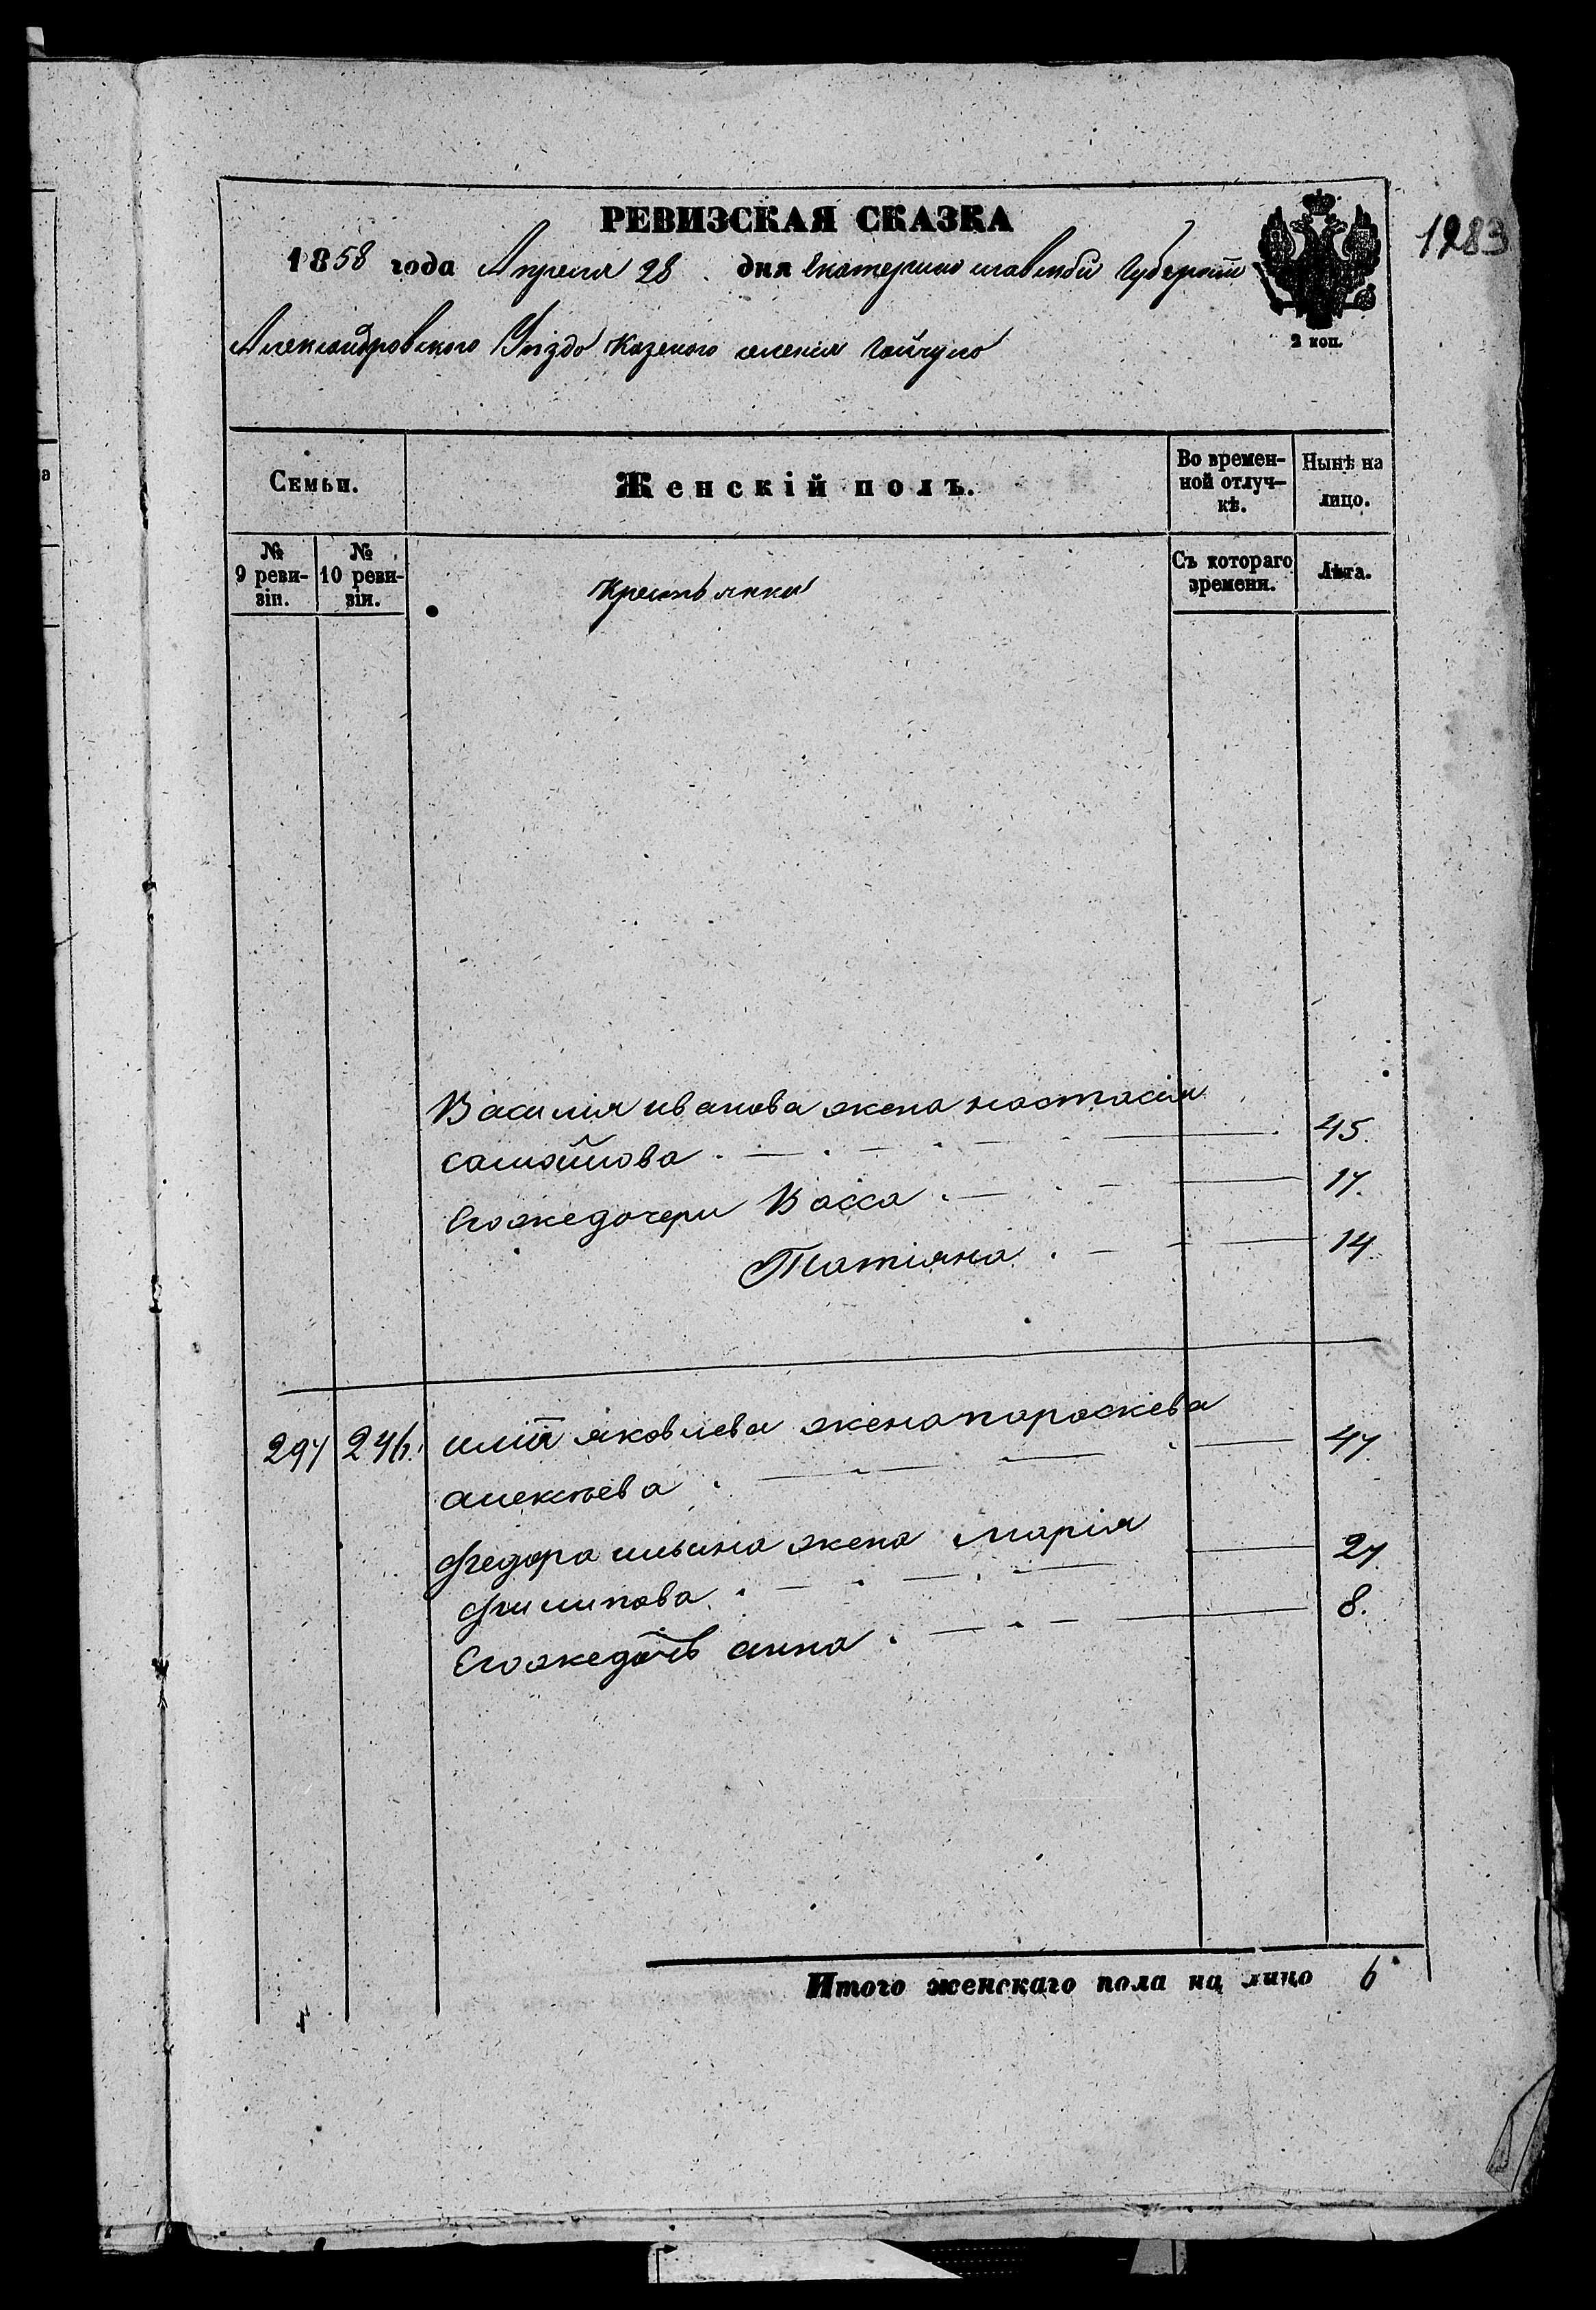 РЕВИЗСКАЯ СКАЗКА
1283
1858 года Апреля 28 дня Екатеринославской Губернии
2 коп.
Александровского Уезда Казеного селения Гайчула
Семьи.
Женскій полъ.
Во времен-
ной отлуч-
кѣ.
Нынѣ на
лицо.
№
9 реви-
зіи.
№
10 реви-
зіи.
Крестьянки
Съ котораго
времени.
Лѣта.
Василия иванова жена настасия
самойлова 45.
Его же дочери Васса 17.
Татіяна 14.
297 246. иліи яковлева жена параскева
алексѣева 47.
Федора ильина жена Марія
Филипова 27.
Его же дочь анна 8.
Итого женскаго пола на лицо 6